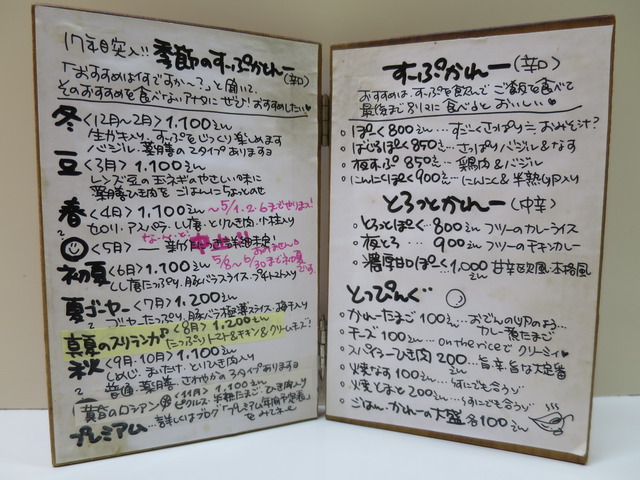 17年目突入!! 季節のすーぷかれー(辛口)
「おすすめは何ですか〜?」と聞いて、
そのおすすめを食べないアナタにぜひ!おすすめしたい♥
冬 <12月〜2月> 1.100えん
生かき入り。すーぷをじっくり楽しめます
バジル、薬膳の2タイプあります
豆 <3月> 1.100えん
レンズ豆の玉ネギのやさしい味に
薬膳ひき肉を ごはんにちょっとのせ
春 <4月> 1.100えん 〜5/1.2.6までやります!
セロリ、アスパラ、しし唐、とりひき肉、小柱入り
<5月> 新作
5/8〜6/30まで初夏です
初夏 <6月> 1.100えん
しし唐たっぷり、豚バラスライス、プチトマト入り
夏ゴーヤー <7月> 1.200えん
ゴーヤーたっぷり、豚バラ極薄スライス、梅干入り
真夏のスリランカ <8月> 1.200えん
たっぷりトマト&チキン&クリームチーズ!
秋 <9月.10月> 1.100えん
しめじ、まいたけ、とりひき肉入り
普通、薬膳、さわやかの3タイプあります
黄昏のロシアン <11月> 1.100えん
ピクルス、半熟たまご、ひき肉入り
プレミアム…詳しくはブログ「プレミアム年間予定表」
をみてネー
すーぷかれー(辛口)
おすすめは、すーぷを飲んで ご飯を食べて
最後まで別々に食べるとおいしい♥
ぽーく 800えん… すごくさっぱり≒おみそ汁?
ばじるぽーく 850えん… さっぱりバジル&なす
夜すーぷ 850えん… 鶏肉&バジル
にんにくぽーく 900えん… にんにく&半熟卵入り
とろっとかれー(中辛)
とろっとぽーく… 800えん フツーのカレーライス
夜とろ… 900えん フツーのチキンカレー
濃厚甘口ぽーく 1,000えん 甘辛欧風・本格風
とっぴんぐ
かれーたまご 100えん… おでんの卵のよう…
カレー煮たまご
チーズ 100えん… on the riceで クリーミィ♥
スパイシーひき肉 200えん… 旨辛、旨な大定番
焼なす 100えん… 何にでも合うゾ
焼とまと 200えん… 何にでも合うゾ
ごはん、かれーの大盛 各100えん